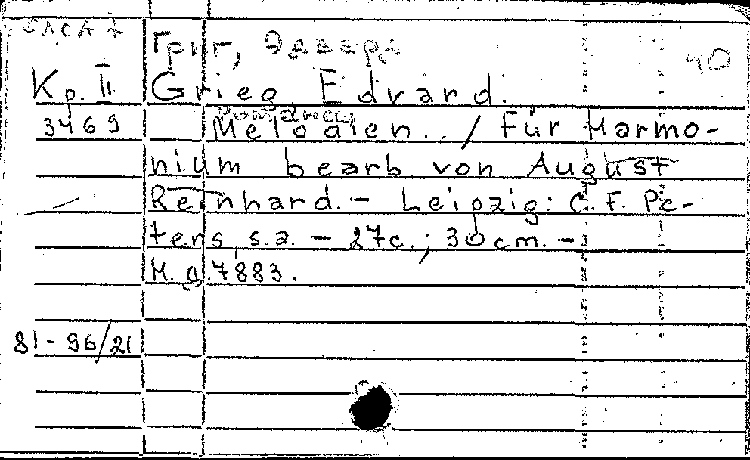 Григ, Эдвард
40
Кр. II Grieg Edvard.
Романсы
3469 Melodien.. / für Harmo-
nium bearb von August
Reinhard. - Leipzig: C. F. Pe-
ters, s.a. - 27c.; 30cm. -
Н. д. 7883.
81-96/21